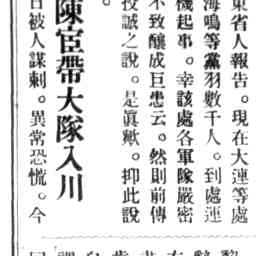 東省人報告。現在大連等處
海鳴等黨羽數千人。到處運
機起事。幸該處各軍隊嚴密
不致釀成巨患云。然則前傳
投誠之說。是眞歟。抑此說
。
陳宦帶大隊入川
日被人謀刺。異常恐慌。今